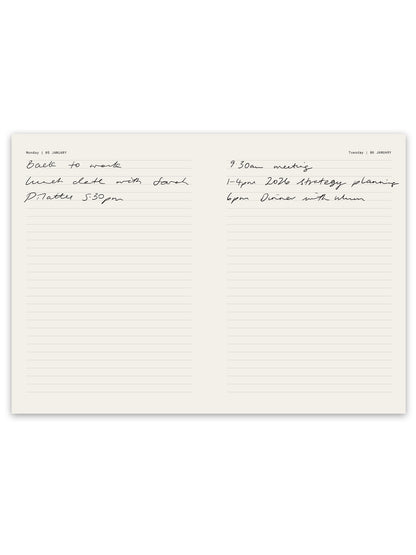 Monday | 05 JANUARY
Back to work
lunch date with Sarah
Pilates 5:30pm
Tuesday | 06 JANUARY
9.30am meeting
1-4pm 2026 strategy planning
6pm Dinner with Mum